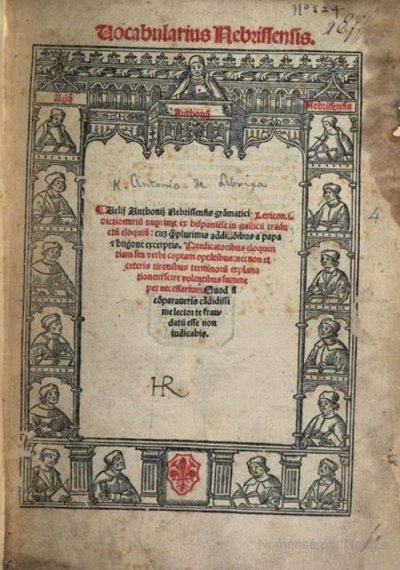 Nº 524
Vocabularius Nebrissensis.
Aelij
Anthonij
Nebrissensis
K. Antonio de Lebrixa
4
Aelij Anthonij Nebrissensis grãmatici Lexicon.i.
dictionariũ nup:rime ex hispaniẽse in gallicũ tradu
ctũ eloquiũ: cuz q̃plurimis additiõibus a papa
⁊ hugone excerptis. Predicatoribus eloquen
tiam seu verbi copiam optãtibus:necnon et
ceteris tironibus terminorũ explana
tionem scire volentibus summe
per necessarium. Quod si
cõparaueris cãdidissi
me lector te frau
datũ esse non
iudicabis.
HR
Numérisé par Google